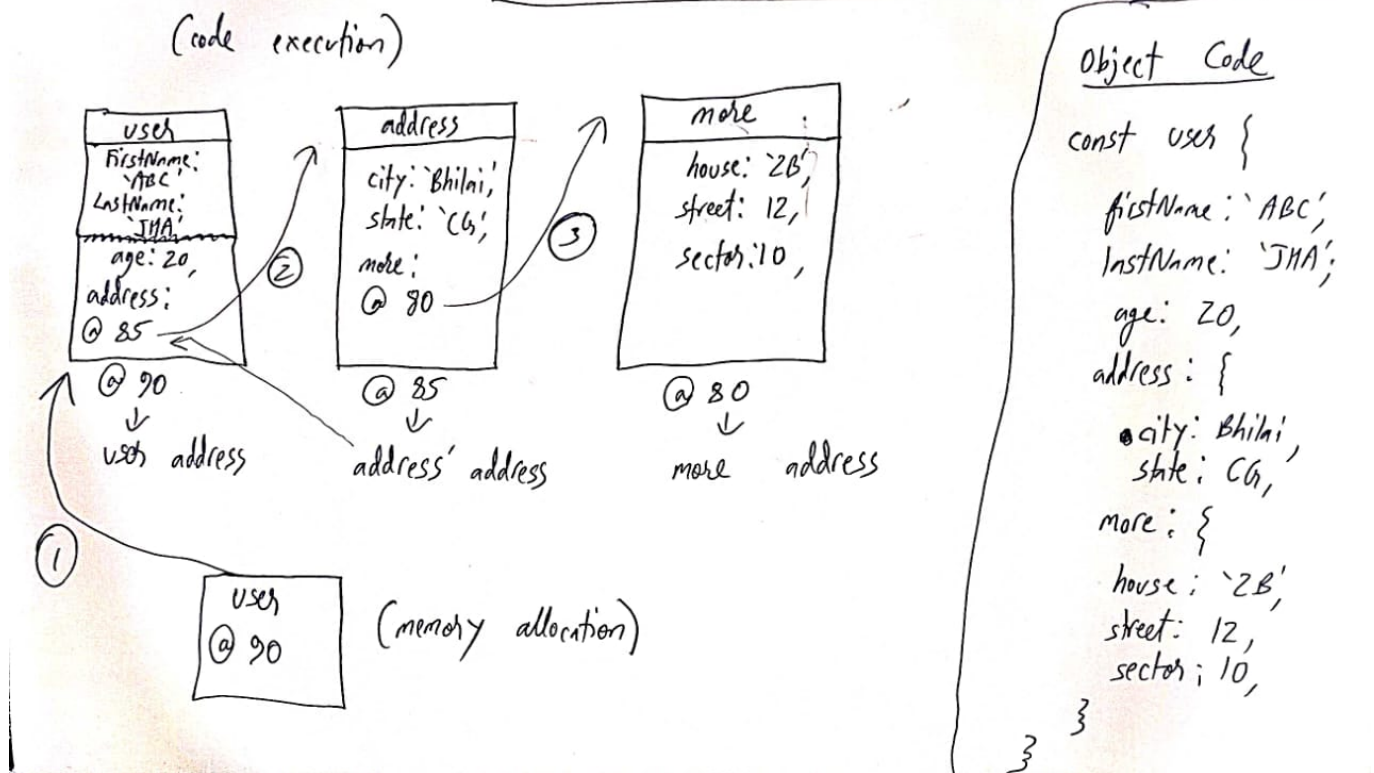 (code execution)
user
FirstName:
`ABC'
LastName:
`JHA'
age: 20,
address:
@ 85
@ 90
user address
②
address
city: `Bhilai,'
state: `CG,'
more:
@ 80
@ 85
address' address
③
more
house: `2B',
street: 12,
sector: 10,
@ 80
more address
①
user
@ 90
(memory allocation)
Object Code
const user {
firstName: `ABC',
lastName: `JHA';
age: 20,
address: {
city: Bhilai,
state: CG,
more: {
house: `2B',
street: 12,
sector; 10,
}
}